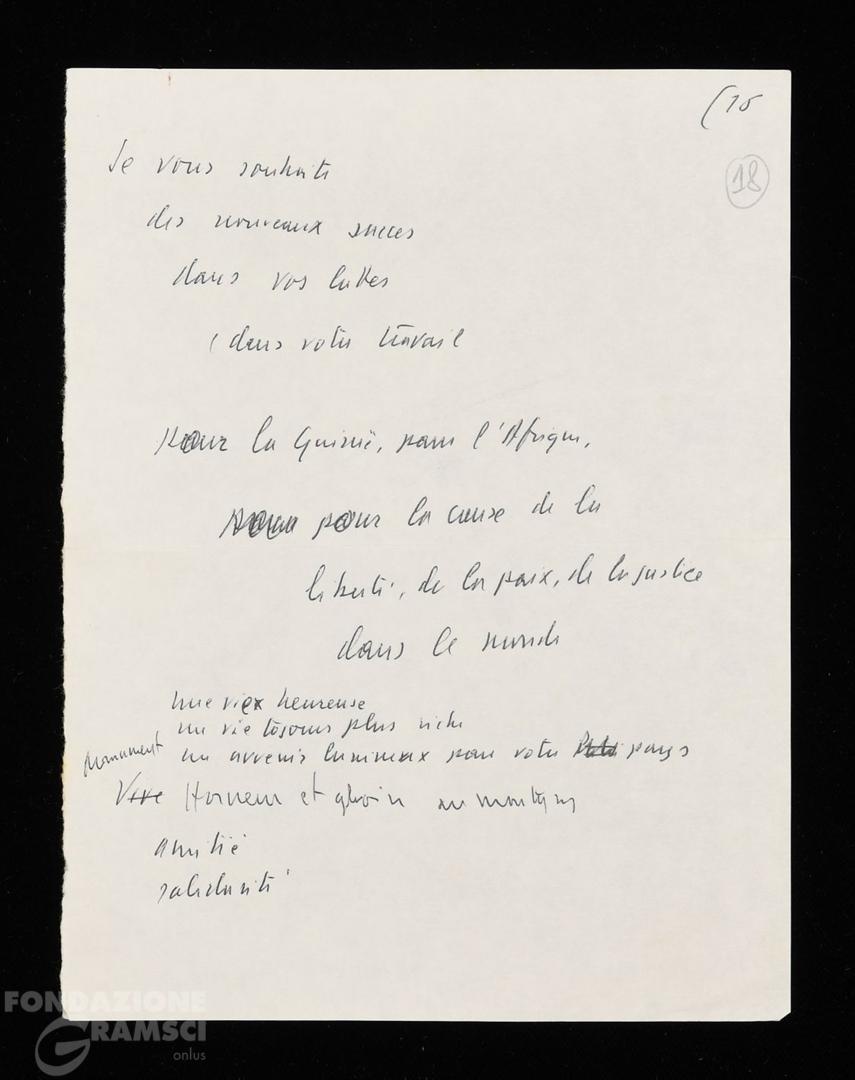 (15
18
Je vous souhaite
des nouveaux succes
dans vos luttes
(dans votre travail
pour la Guinée, pour l'Afrique,
pour la cause de la
liberté, de la paix, de la justice
dans le monde
Une vie heureuse
une vie tojours plus riche
monument un avvenir lumineux pour votre pays
Vive Honneur et gloire au martyrs
amitié
solidarité
FONDAZIONE
GRAMSCI
onlus